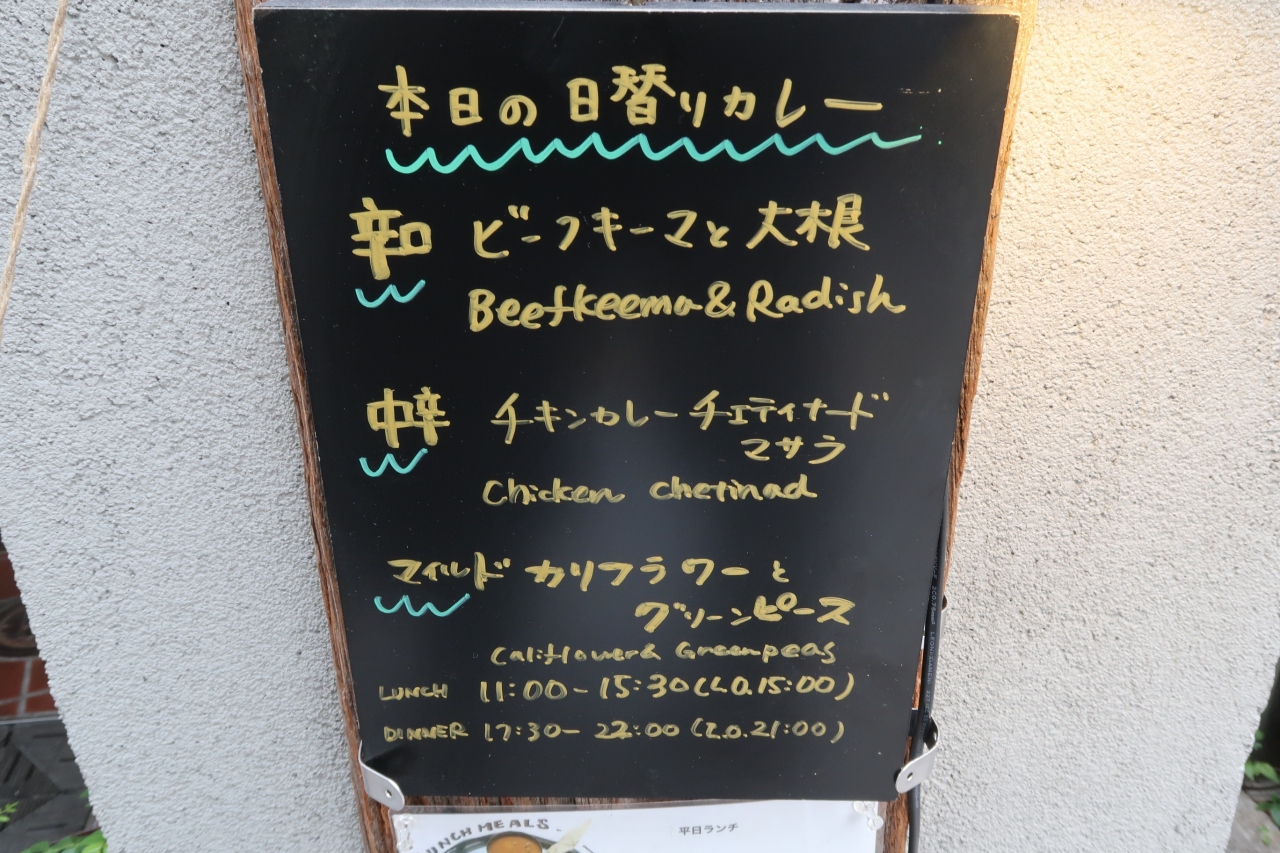 本日の日替りカレー
辛口 ビーフキーマと大根
Beefkeema & Radish
中辛 チキンカレーチェティナード
マサラ
Chicken chetinad
マイルド カリフラワーと
グリーンピース
Califlower& Greenpeas
LUNCH 11:00-15:30(L.O.15:00)
DINNER 17:30-22:00(L.O.21:00)
LUNCH MEALS
平日ランチ